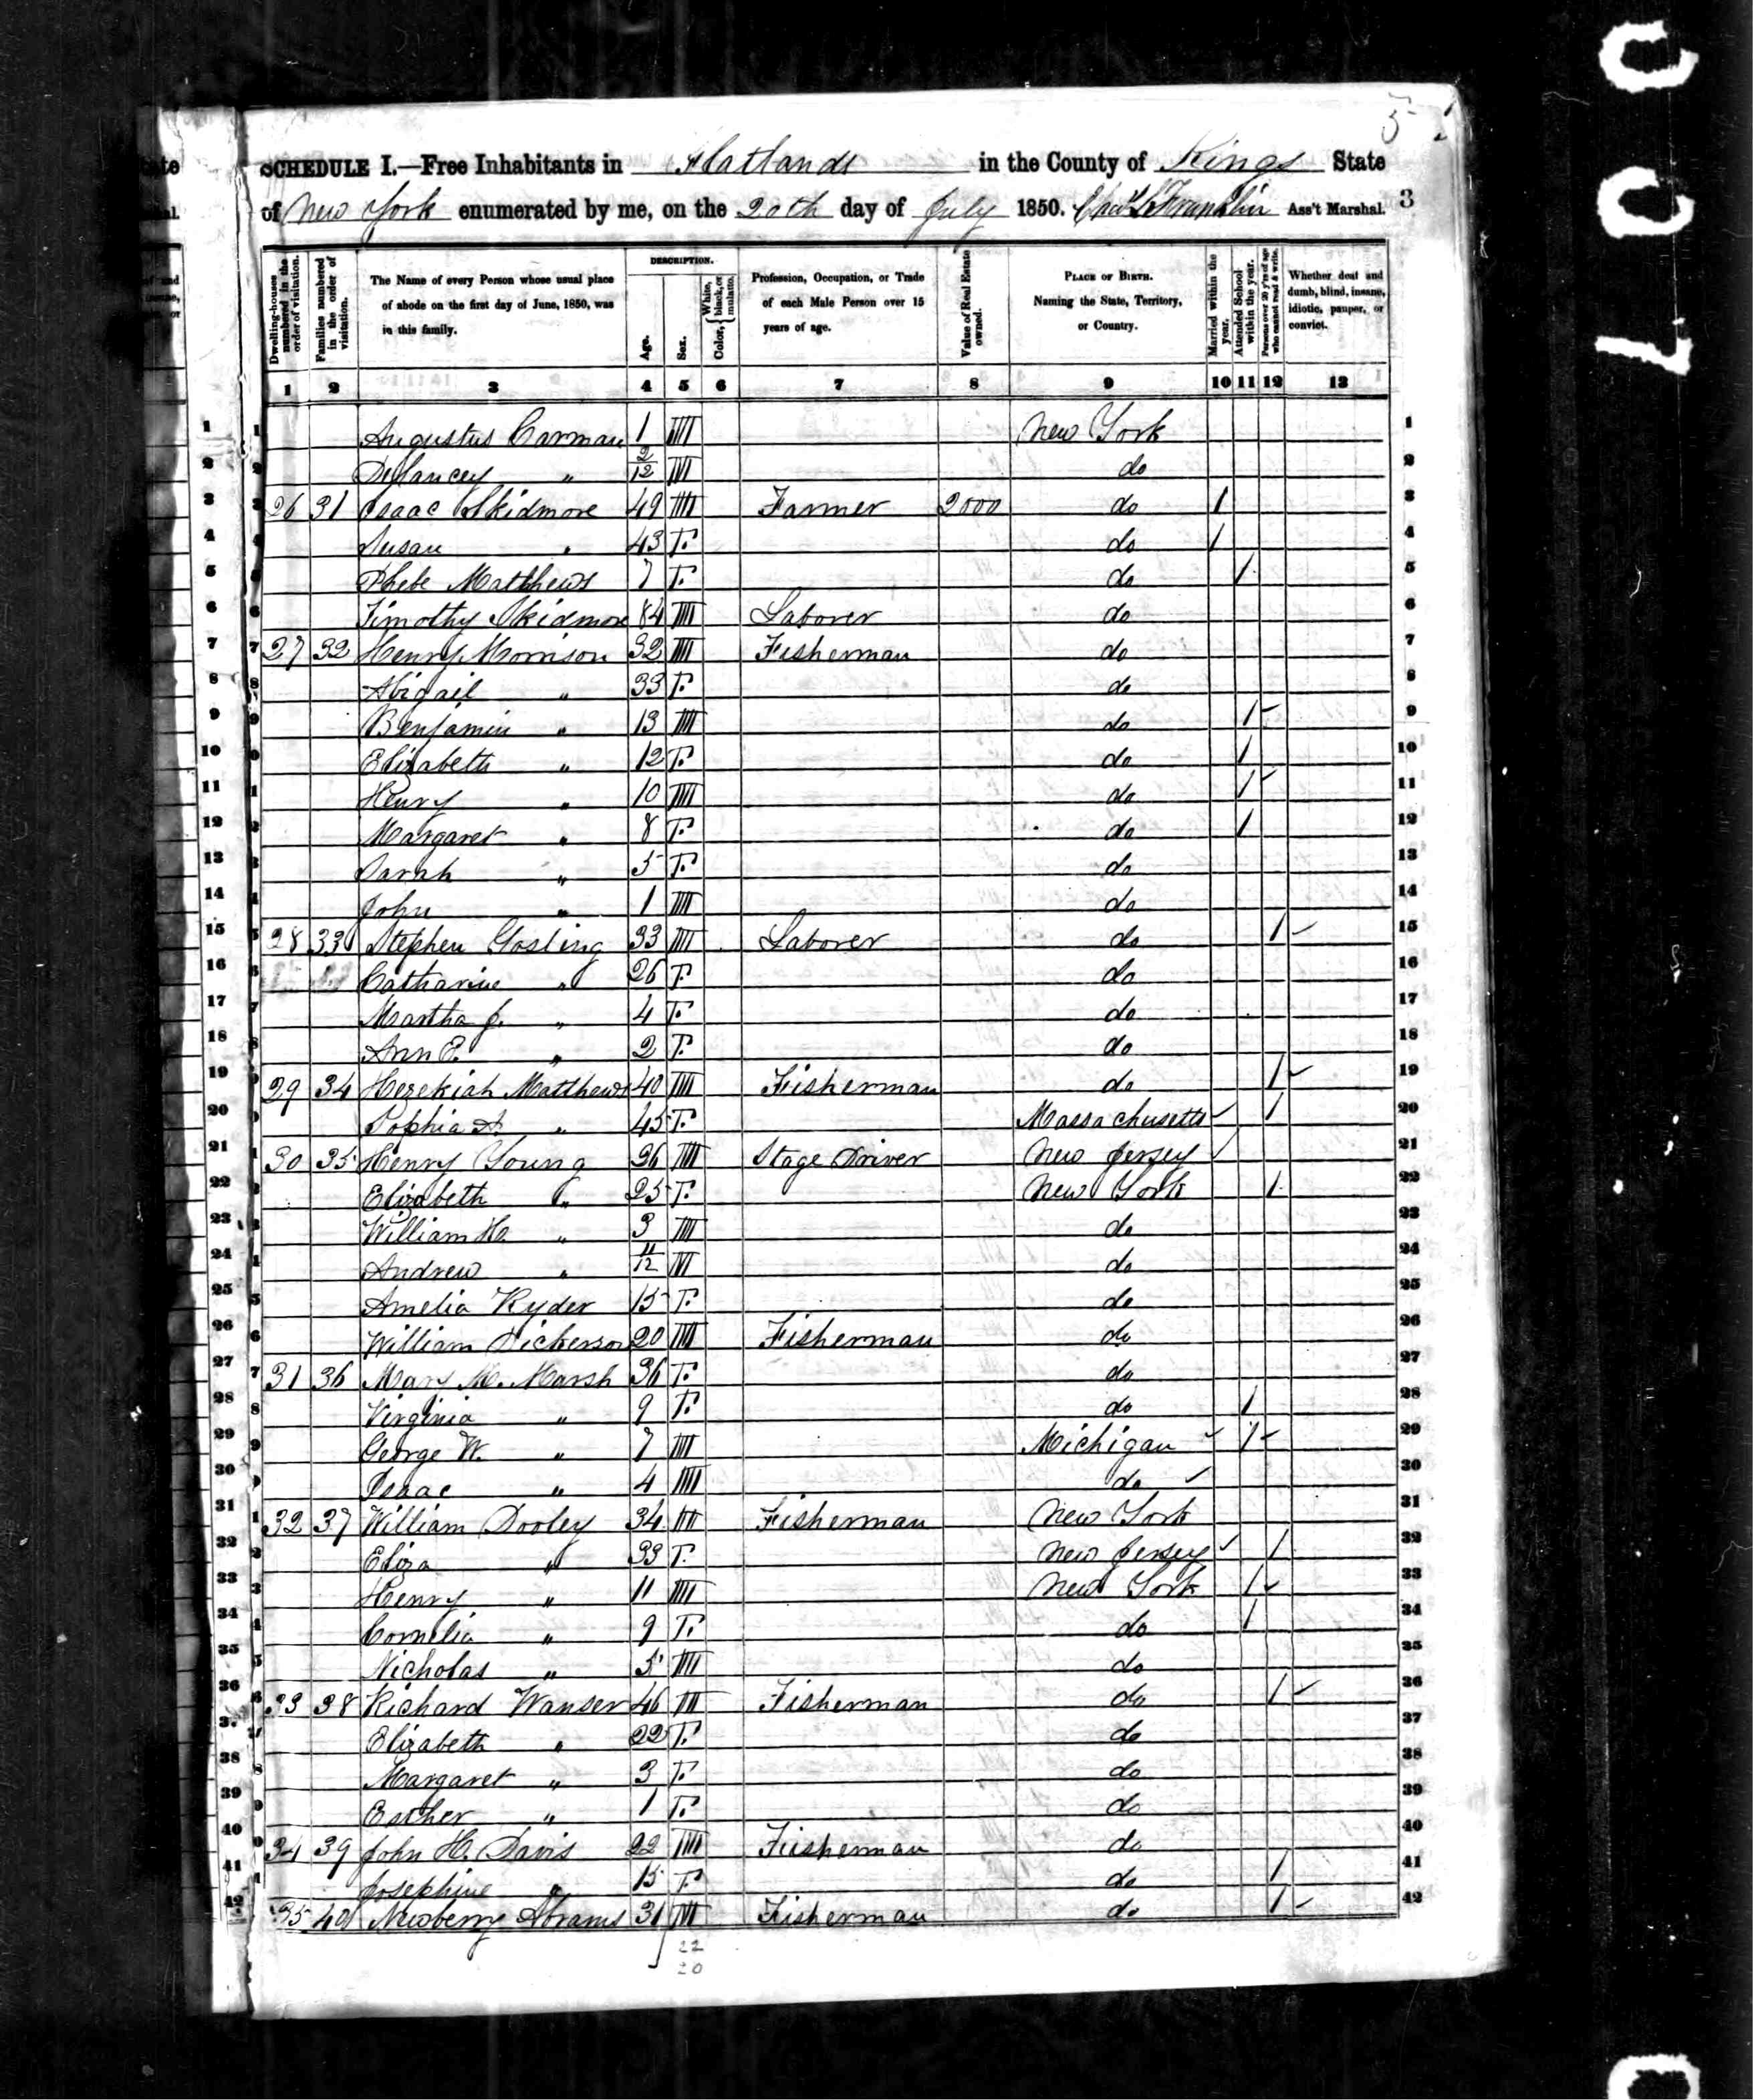 SCHEDULE I.—Free Inhabitants in Flatlands in the County of Kings State
of New York enumerated by me, on the 20th day of July 1850. Franklin Ass't Marshal. 3
Dwelling-houses numbered in the order of visitation.
Families numbered in the order of visitation.
The Name of every Person whose usual place of abode on the first day of June, 1850, was in this family.
DESCRIPTION.
Age.
Sex.
Color, White, black, or mulatto.
Profession, Occupation, or Trade of each Male Person over 15 years of age.
Value of Real Estate owned.
PLACE OF BIRTH. Naming the State, Territory, or Country.
Married within the year.
Attended School within the year.
Persons over 20 y'rs of age who cannot read & write.
Whether deaf and dumb, blind, insane, idiotic, pauper, or convict.
1 2 3 4 5 6 7 8 9 10 11 12 13
1 Augustus Carman 1 M New York 1
2 DeLancey " 2/12 M do 2
3 26 31 Isaac Skidmore 49 M Farmer 2000 do 1 3
4 Susan " 43 F. do 1 4
5 Phebe Matthews 7 F. do 1 5
6 Timothy Skidmore 84 M Laborer do 6
7 27 32 Henry Morrison 32 M Fisherman do 7
8 Abigail " 33 F. do 8
9 Benjamin " 13 M do 1 9
10 Elizabeth " 12 F. do 1 10
11 Henry " 10 M do 1 11
12 Margaret " 8 F. do 1 12
13 Sarah " 5 F. do 13
14 John " 1 M do 14
15 28 33 Stephen Gosling 33 M Laborer do 1 15
16 Catharine " 26 F. do 16
17 Martha J. " 4 F. do 17
18 Ann E. " 2 F. do 18
19 29 34 Hezekiah Matthews 40 M Fisherman do 1 19
20 Sophia A. " 45 F. Massachusetts 1 20
21 30 35 Henry Young 36 M Stage Driver New Jersey 21
22 Elizabeth " 25 F. New York 1 22
23 William H. " 3 M do 23
24 Andrew " 11/12 M do 24
25 Amelia Ryder 15 F. do 25
26 William Dickerson 20 M Fisherman do 26
27 31 36 Mary M. Marsh 36 F. do 27
28 Virginia " 9 F. do 1 28
29 George W. " 7 M Michigan 1 29
30 Isaac " 4 M do 30
31 32 37 William Dooley 34 M Fisherman New York 31
32 Eliza " 33 F. New Jersey 1 32
33 Henry " 11 M New York 1 33
34 Cornelia " 9 F. do 1 34
35 Nicholas " 5 M do 35
36 33 38 Richard Wanser 46 M Fisherman do 1 36
37 Elizabeth " 22 F. do 37
38 Margaret " 3 F. do 38
39 Esther " 1 F. do 39
40 34 39 John H. Davis 22 M Fisherman do 40
41 Josephine " 15 F. do 1 41
42 35 40 Newberry Abrams 31 M Fisherman do 1 42
22
20